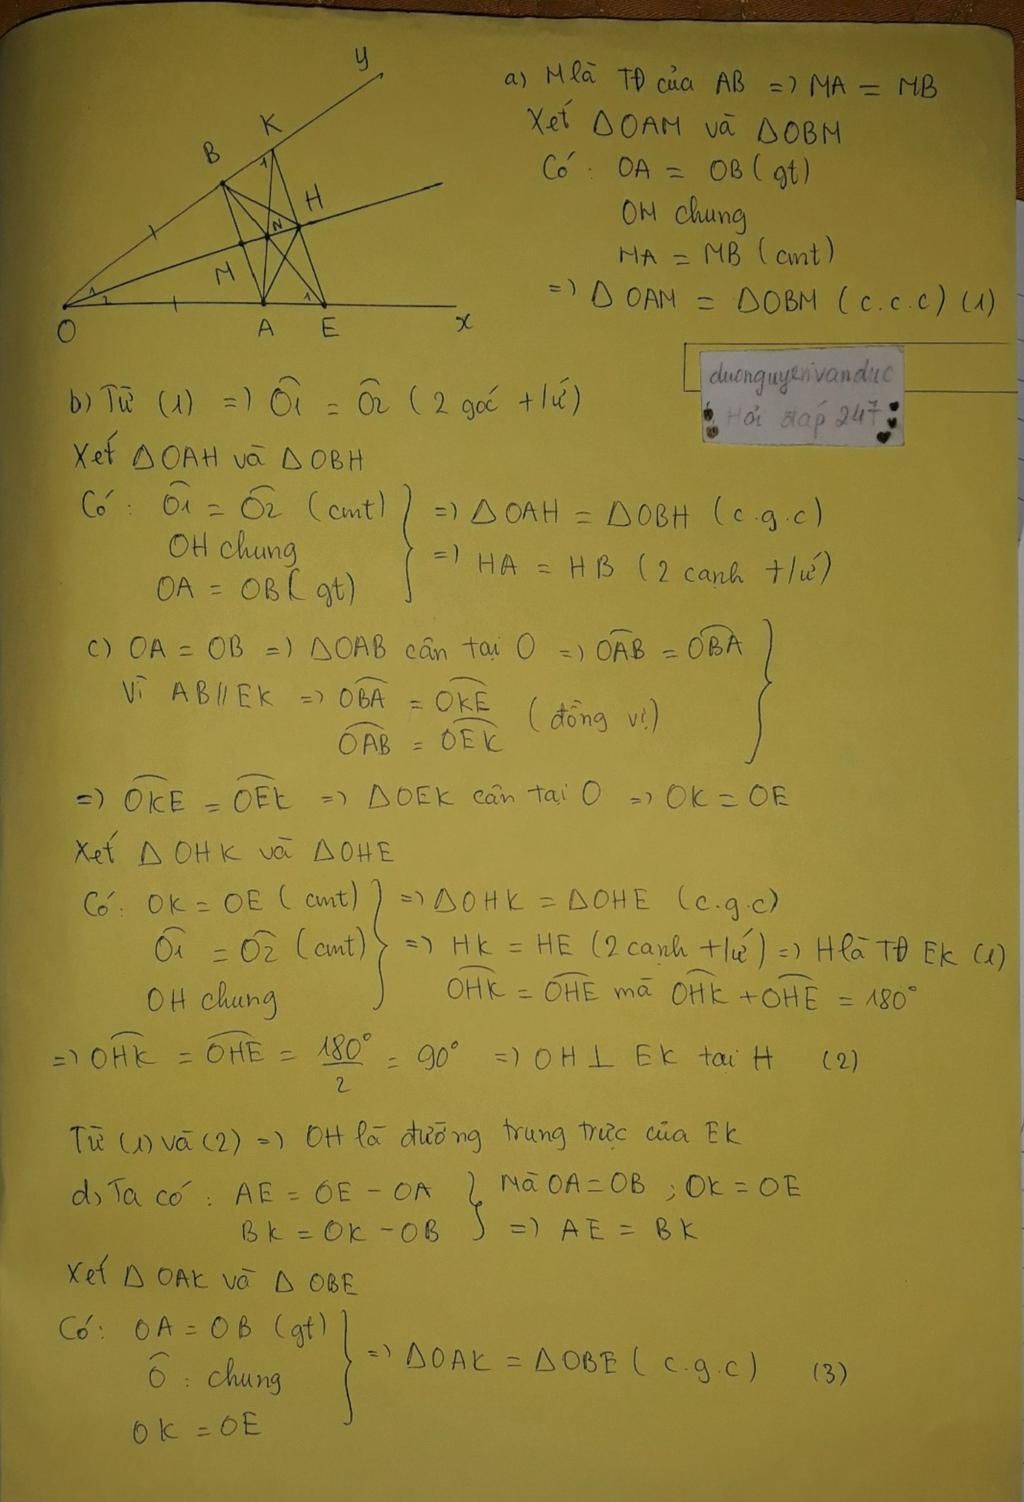 y
K
B
1
H
N
M
1
2
1
O
A
E
x
a) M là TĐ của AB => MA = MB
Xét ΔOAM và ΔOBM
Có : OA = OB (gt)
OM chung
MA = MB (cmt)
=> Δ OAM = ΔOBM (c.c.c) (1)
duonguyenvanduc
Hỏi đáp 247
b) Từ (1) => Ô1 = Ô2 (2 góc t/ứ)
Xét ΔOAH và ΔOBH
Có : Ô1 = Ô2 (cmt)
OH chung
OA = OB (gt)
=> ΔOAH = ΔOBH (c.g.c)
=> HA = HB (2 cạnh t/ứ)
c) OA = OB => ΔOAB cân tại O => OÂB = OB̂A
Vì AB // EK => OB̂A = OK̂E
OÂB = OÊK
(đồng vị)
=> OK̂E = OÊK => ΔOEK cân tại O => OK = OE
Xét Δ OHK và ΔOHE
Có: OK = OE (cmt)
Ô1 = Ô2 (cmt)
OH chung
=> ΔOHK = ΔOHE (c.g.c)
=> HK = HE (2 cạnh t/ứ) => H là TĐ EK (1)
OĤK = OĤE mà OĤK + OĤE = 180°
=> OĤK = OĤE = 180°/2 = 90° => OH ⊥ EK tại H (2)
Từ (1) và (2) => OH là đường trung trực của EK
d) Ta có : AE = OE - OA
BK = OK - OB
Mà OA = OB ; OK = OE
=> AE = BK
Xét Δ OAK và Δ OBE
Có: OA = OB (gt)
Ô : chung
OK = OE
=> ΔOAK = ΔOBE (c.g.c) (3)